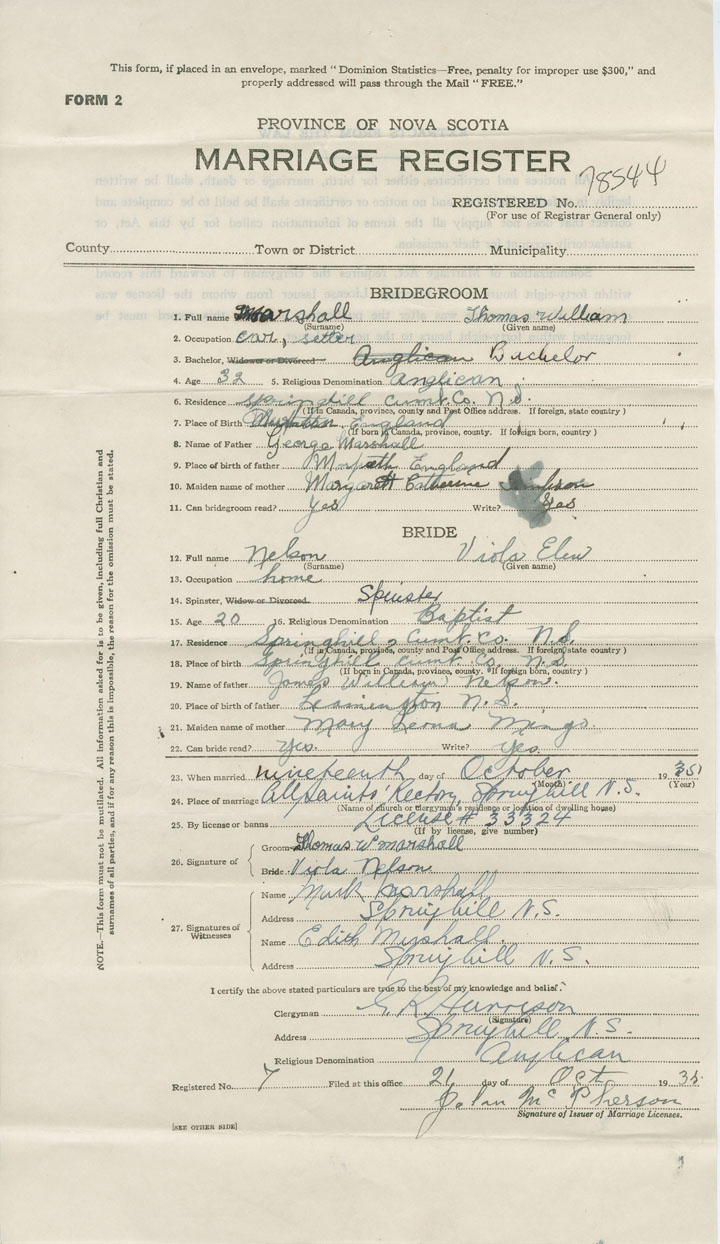 This form, if placed in an envelope, marked "Dominion Statistics—Free, penalty for improper use $300," and
properly addressed will pass through the Mail "FREE."
FORM 2
PROVINCE OF NOVA SCOTIA
MARRIAGE REGISTER
78544
REGISTERED No.
(For use of Registrar General only)
County Town or District Municipality
BRIDEGROOM
1. Full name Marshall Thomas William
(Surname) (Given name)
2. Occupation car, setter
3. Bachelor, Widower or Divorced Anglican Bachelor
4. Age 32 5. Religious Denomination Anglican
6. Residence Springhill Cumb. Co. N.S.
(If in Canada, province, county and Post Office address. If foreign, state country)
7. Place of Birth England
(If born in Canada, province, county. If foreign born, country)
8. Name of Father George Marshall
9. Place of birth of father Morpeth England
10. Maiden name of mother Margaret Catherine
11. Can bridegroom read? Yes Write? Yes
BRIDE
12. Full name Nelson Viola
(Surname) (Given name)
13. Occupation home
14. Spinster, Widow or Divorced Spinster
15. Age 20 16. Religious Denomination Baptist
17. Residence Springhill, Cumb. Co. N.S.
(If in Canada, province, county and Post Office address. If foreign, state country)
18. Place of birth Springhill Cumb. Co. N.S.
(If born in Canada, province, county. If foreign born, country)
19. Name of father James William Nelson.
20. Place of birth of father Leamington N.S.
21. Maiden name of mother Mary Leona Mingo.
22. Can bride read? yes. Write? yes.
23. When married nineteenth day of October 1935
(Month) (Year)
24. Place of marriage All Saints' Rectory, Springhill N.S.
(Name of church or clergyman's residence or location of dwelling house)
25. By license or banns License # 33324
(If by license, give number)
26. Signature of
Groom Thomas W marshall
Bride Viola Nelson
27. Signatures of Witnesses
Name Mark Marshall
Address Springhill N.S.
Name Edith Marshall.
Address Springhill N.S.
I certify the above stated particulars are true to the best of my knowledge and belief.
Clergyman Harrison
(Signature)
Address Springhill N.S.
Religious Denomination Anglican
Registered No. 7 Filed at this office 21 day of Oct 1935
John McPherson
Signature of Issuer of Marriage Licenses.
[SEE OTHER SIDE]
NOTE.—This form must not be mutilated. All information asked for is to be given, including full Christian and
surnames of all parties, and if for any reason this is impossible, the reason for the omission must be stated.